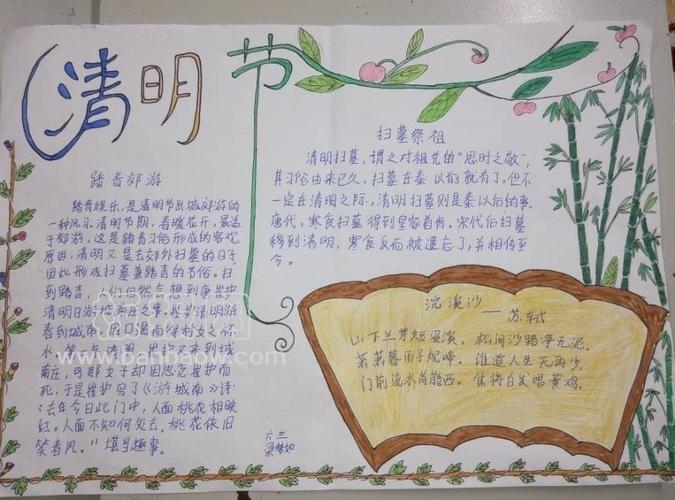 清明节
踏青郊游
踏青娱乐,是清明节出城郊游的
一种风习。清明节期,春暖花开,最适
于郊游,这是踏青习俗形成的客观
原因,清明又是去郊外扫墓的日子,
因此形成扫墓兼踏青的节俗。扫
到踏青,人们自然会想到唐崔护
清明日游城南在事。崔护清明游
看到城南,因口渴向
水
庄,可那女子却因思念崔护而
死,于是崔护写了《游城南》诗
:去年今日此门中,人面桃花相映
红。人面不知何处去,桃花依旧
笑春风。"堪当趣事。
扫墓祭祖
清明扫墓,谓之对祖先的"思时之敬",
其习俗由来已久。扫墓在秦以前就有了,但不
一定在清明之际,清明扫墓则是秦以后的事。
唐代,寒食扫墓得到皇家首肯。宋代后扫墓
移到清明,寒食反而被遗忘了,并相传至
今。
浣溪沙
——苏轼
山下兰芽短浸溪,松间沙路净无泥。
萧萧暮雨子规啼。谁道人生无再少,
门前流水尚能西。休将白发唱黄鸡。
六三
梁梦如
www.banbaow.com